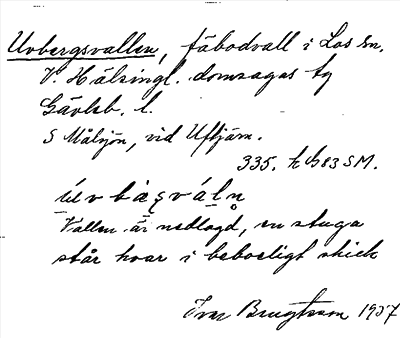 Uvbergsvallen, fäbodvall i Los sn.
V. Hälsingl. domsagas tg
Gävleb. l.
S Målsjön, vid Ultjärn.
335. tb 83 SM.
ùvbæ̀ʂváln̥
Vallen är nedlagd, en stuga
står kvar i beboeligt skick
Ivar Brugtsson 1957